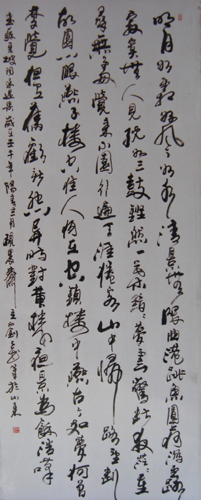 明月如霜好風如水清景無限曲港跳魚圓荷瀉露
寂寞無人見紞如三鼓鏗然一葉黯黯夢雲驚斷夜茫茫重
尋無處覺來小園行遍天涯倦客山中歸路望斷
故園心眼燕子樓空佳人何在空鎖樓中燕古今如夢何曾
夢覺但有舊歡新怨異時對黃樓夜景為余浩嘆
蘇東坡詞永遇樂歲在壬午年陽春三月於山東